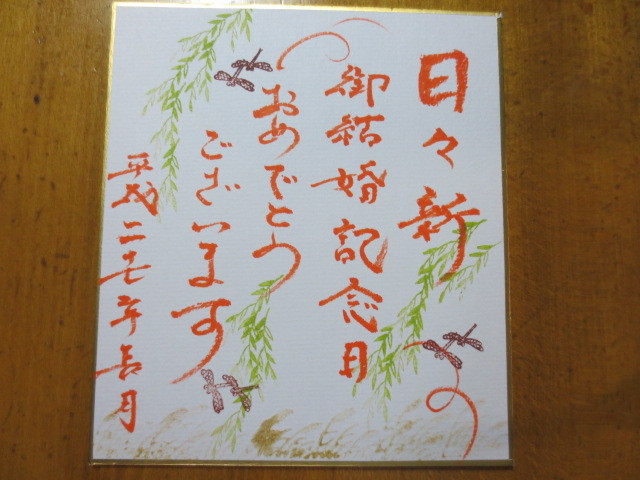 日々新
御結婚記念日
おめでとう
ございます
平成二十七年吉月